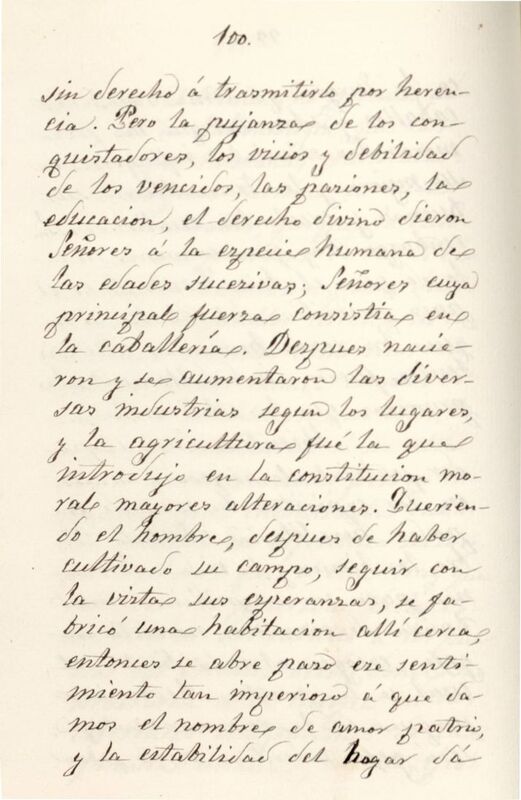 100.
sin derecho á trasmitirlo por heren-
cia. Pero la pujanza de los con-
quistadores, los vicios y debilidad
de los vencidos, las pasiones, la
educacion, el derecho divino dieron
Señores á la especie humana de
las edades sucesivas; Señores cuya
principal fuerza consistia en
la caballería. Despues nacie-
ron y se aumentaron las diver-
sas industrias segun los lugares,
y la agricultura fué la que
introdujo en la constitucion mo-
ral mayores alteraciones. Querien-
do el hombre, despues de haber
cultivado su campo, seguir con
la vista sus esperanzas, se fa-
bricó una habitacion allí cerca,
entonces se abre paso ese senti-
miento tan imperioso á que da-
mos el nombre de amor patrio,
y la estabilidad del hogar dá